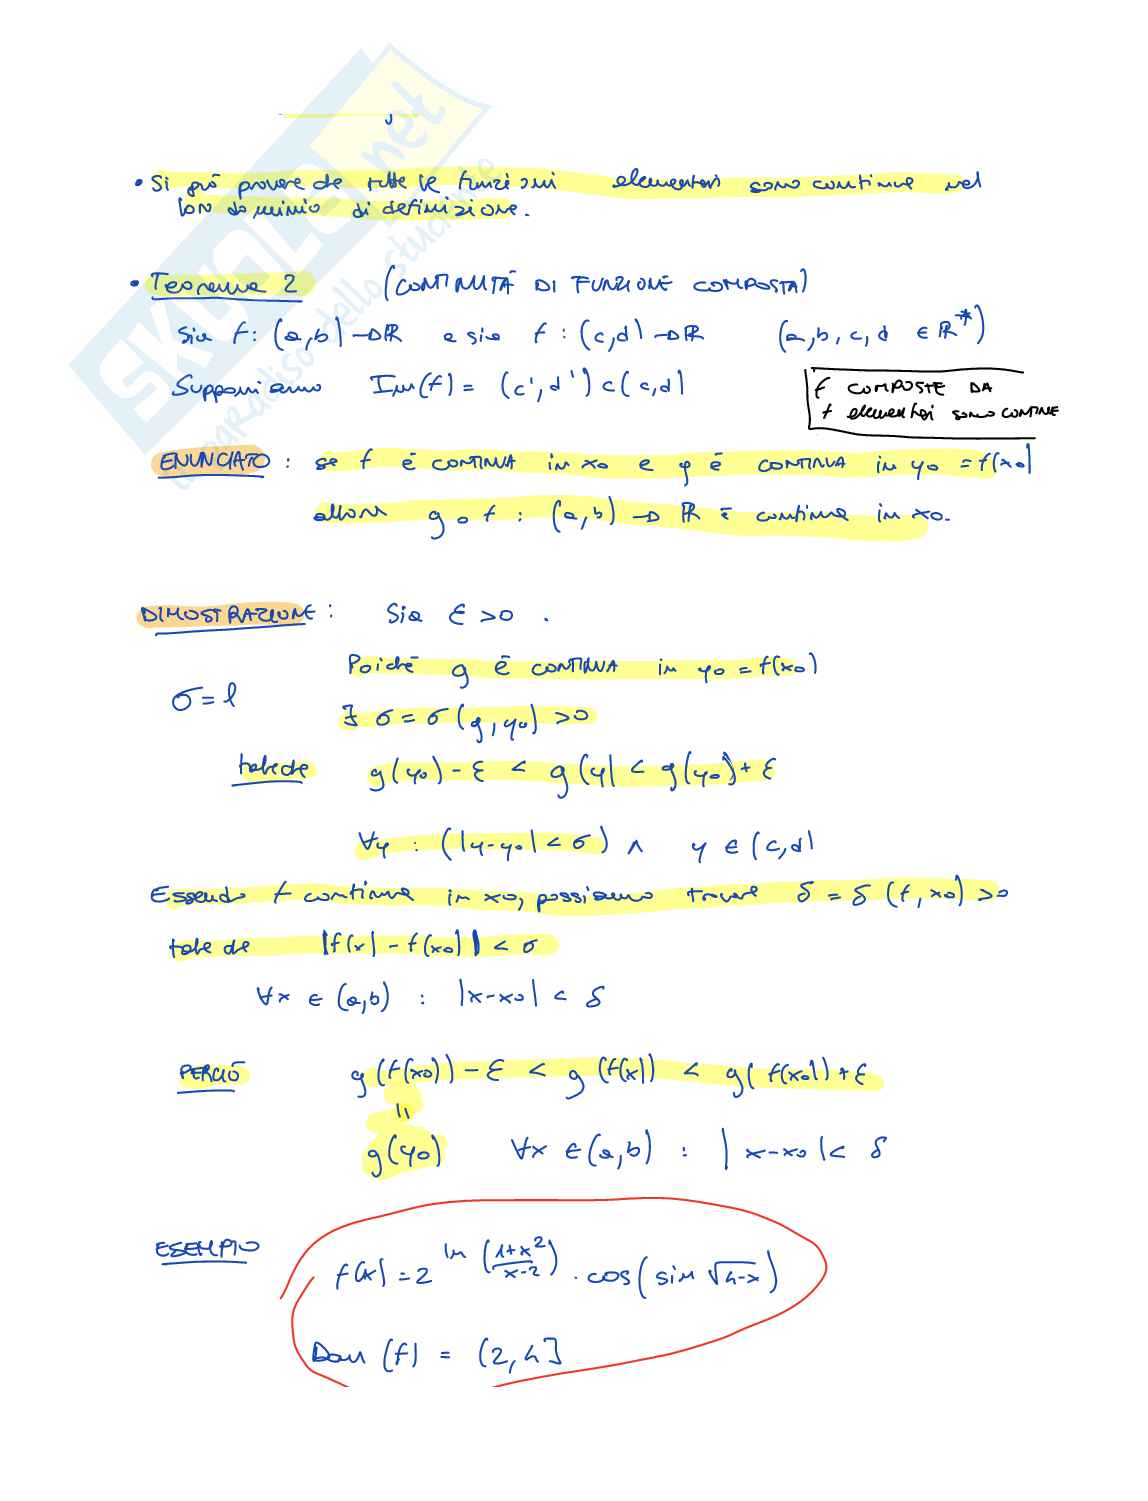 SKUOLA.net
il paradiso dello studente
• Si può provare che tutte le funzioni elementari sono continue nel
loro dominio di definizione.
• Teorema 2 (CONTINUITÀ DI FUNZIONE COMPOSTA)
Sia f: (a,b) → ℝ e sia f : (c,d) → ℝ (a,b,c,d ∈ ℝ*)
Supponiamo Im(f) = (c',d') ⊂ (c,d)
f COMPOSTE DA
f elementari sono CONTINUE
ENUNCIATO : se f è CONTINUA in x0 e g è CONTINUA in y0 = f(x0)
allora g o f : (a,b) → ℝ è continua in x0.
DIMOSTRAZIONE : Sia ε > 0 .
Poiché g è CONTINUA in y0 = f(x0)
σ = l
∃ σ = σ(g,y0) > 0
tale che g(y0) - ε < g(y) < g(y0) + ε
∀y : (|y-y0| < σ) ∧ y ∈ (c,d)
Essendo f continua in x0, possiamo trovare δ = δ(f,x0) > 0
tale che |f(x) - f(x0)| < σ
∀x ∈ (a,b) : |x-x0| < δ
PERCIÒ g(f(x0)) - ε < g(f(x)) < g(f(x0)) + ε
=
g(y0) ∀x ∈ (a,b) : |x-x0| < δ
ESEMPIO f(x) = 2^ln((1+x^2)/(x-2)) · cos(sin √(4-x))
Dom (f) = (2,4]